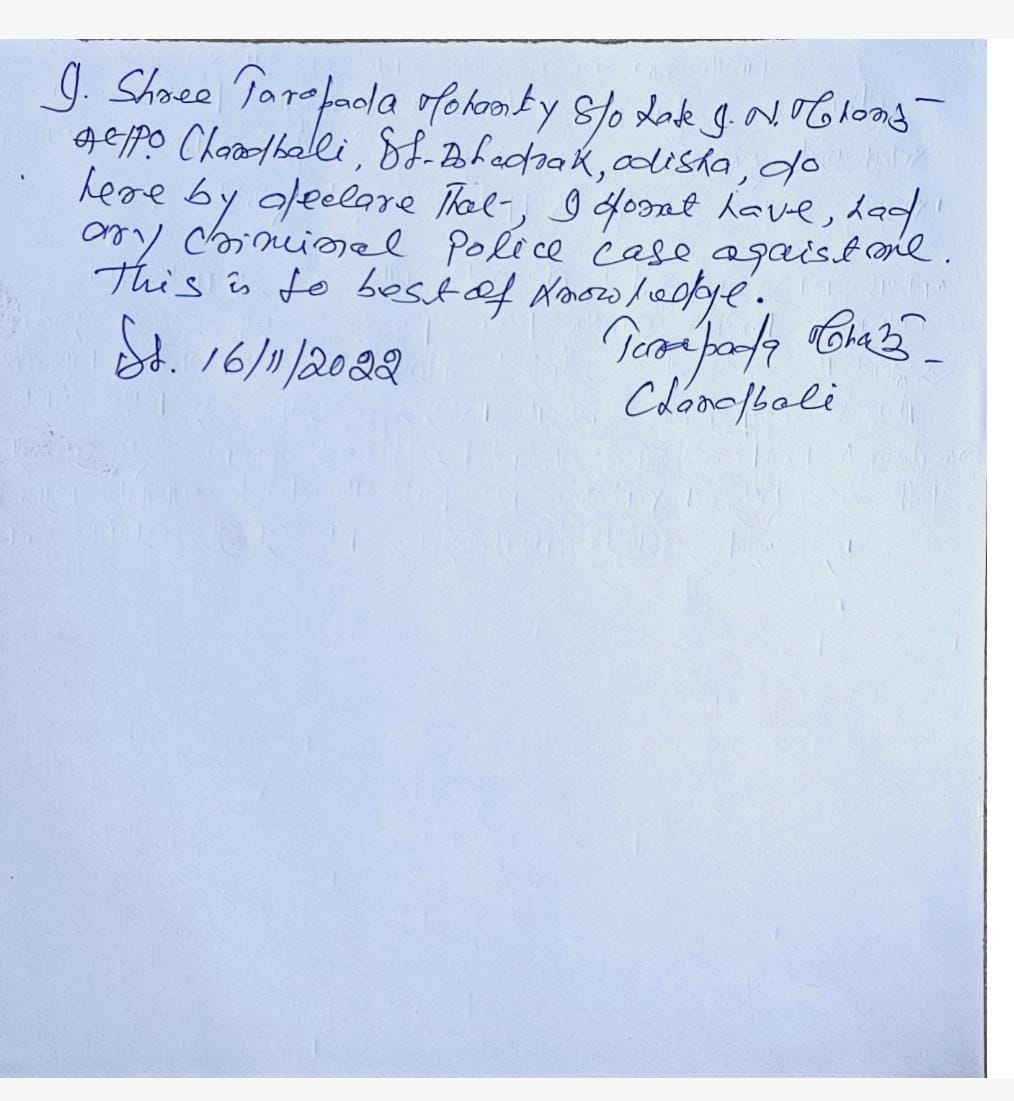 I. Shree Tarapada Mohanty S/o Late J. N. Mohanty
At/Po Chandbali, Dt-Bhadrak, odisha, do
here by declare That, I donot have, had
any Criminal Police case agaist me.
This is to best of knowledge.
Dt. 16/11/2022
Tarapada Mohanty
Chandbali